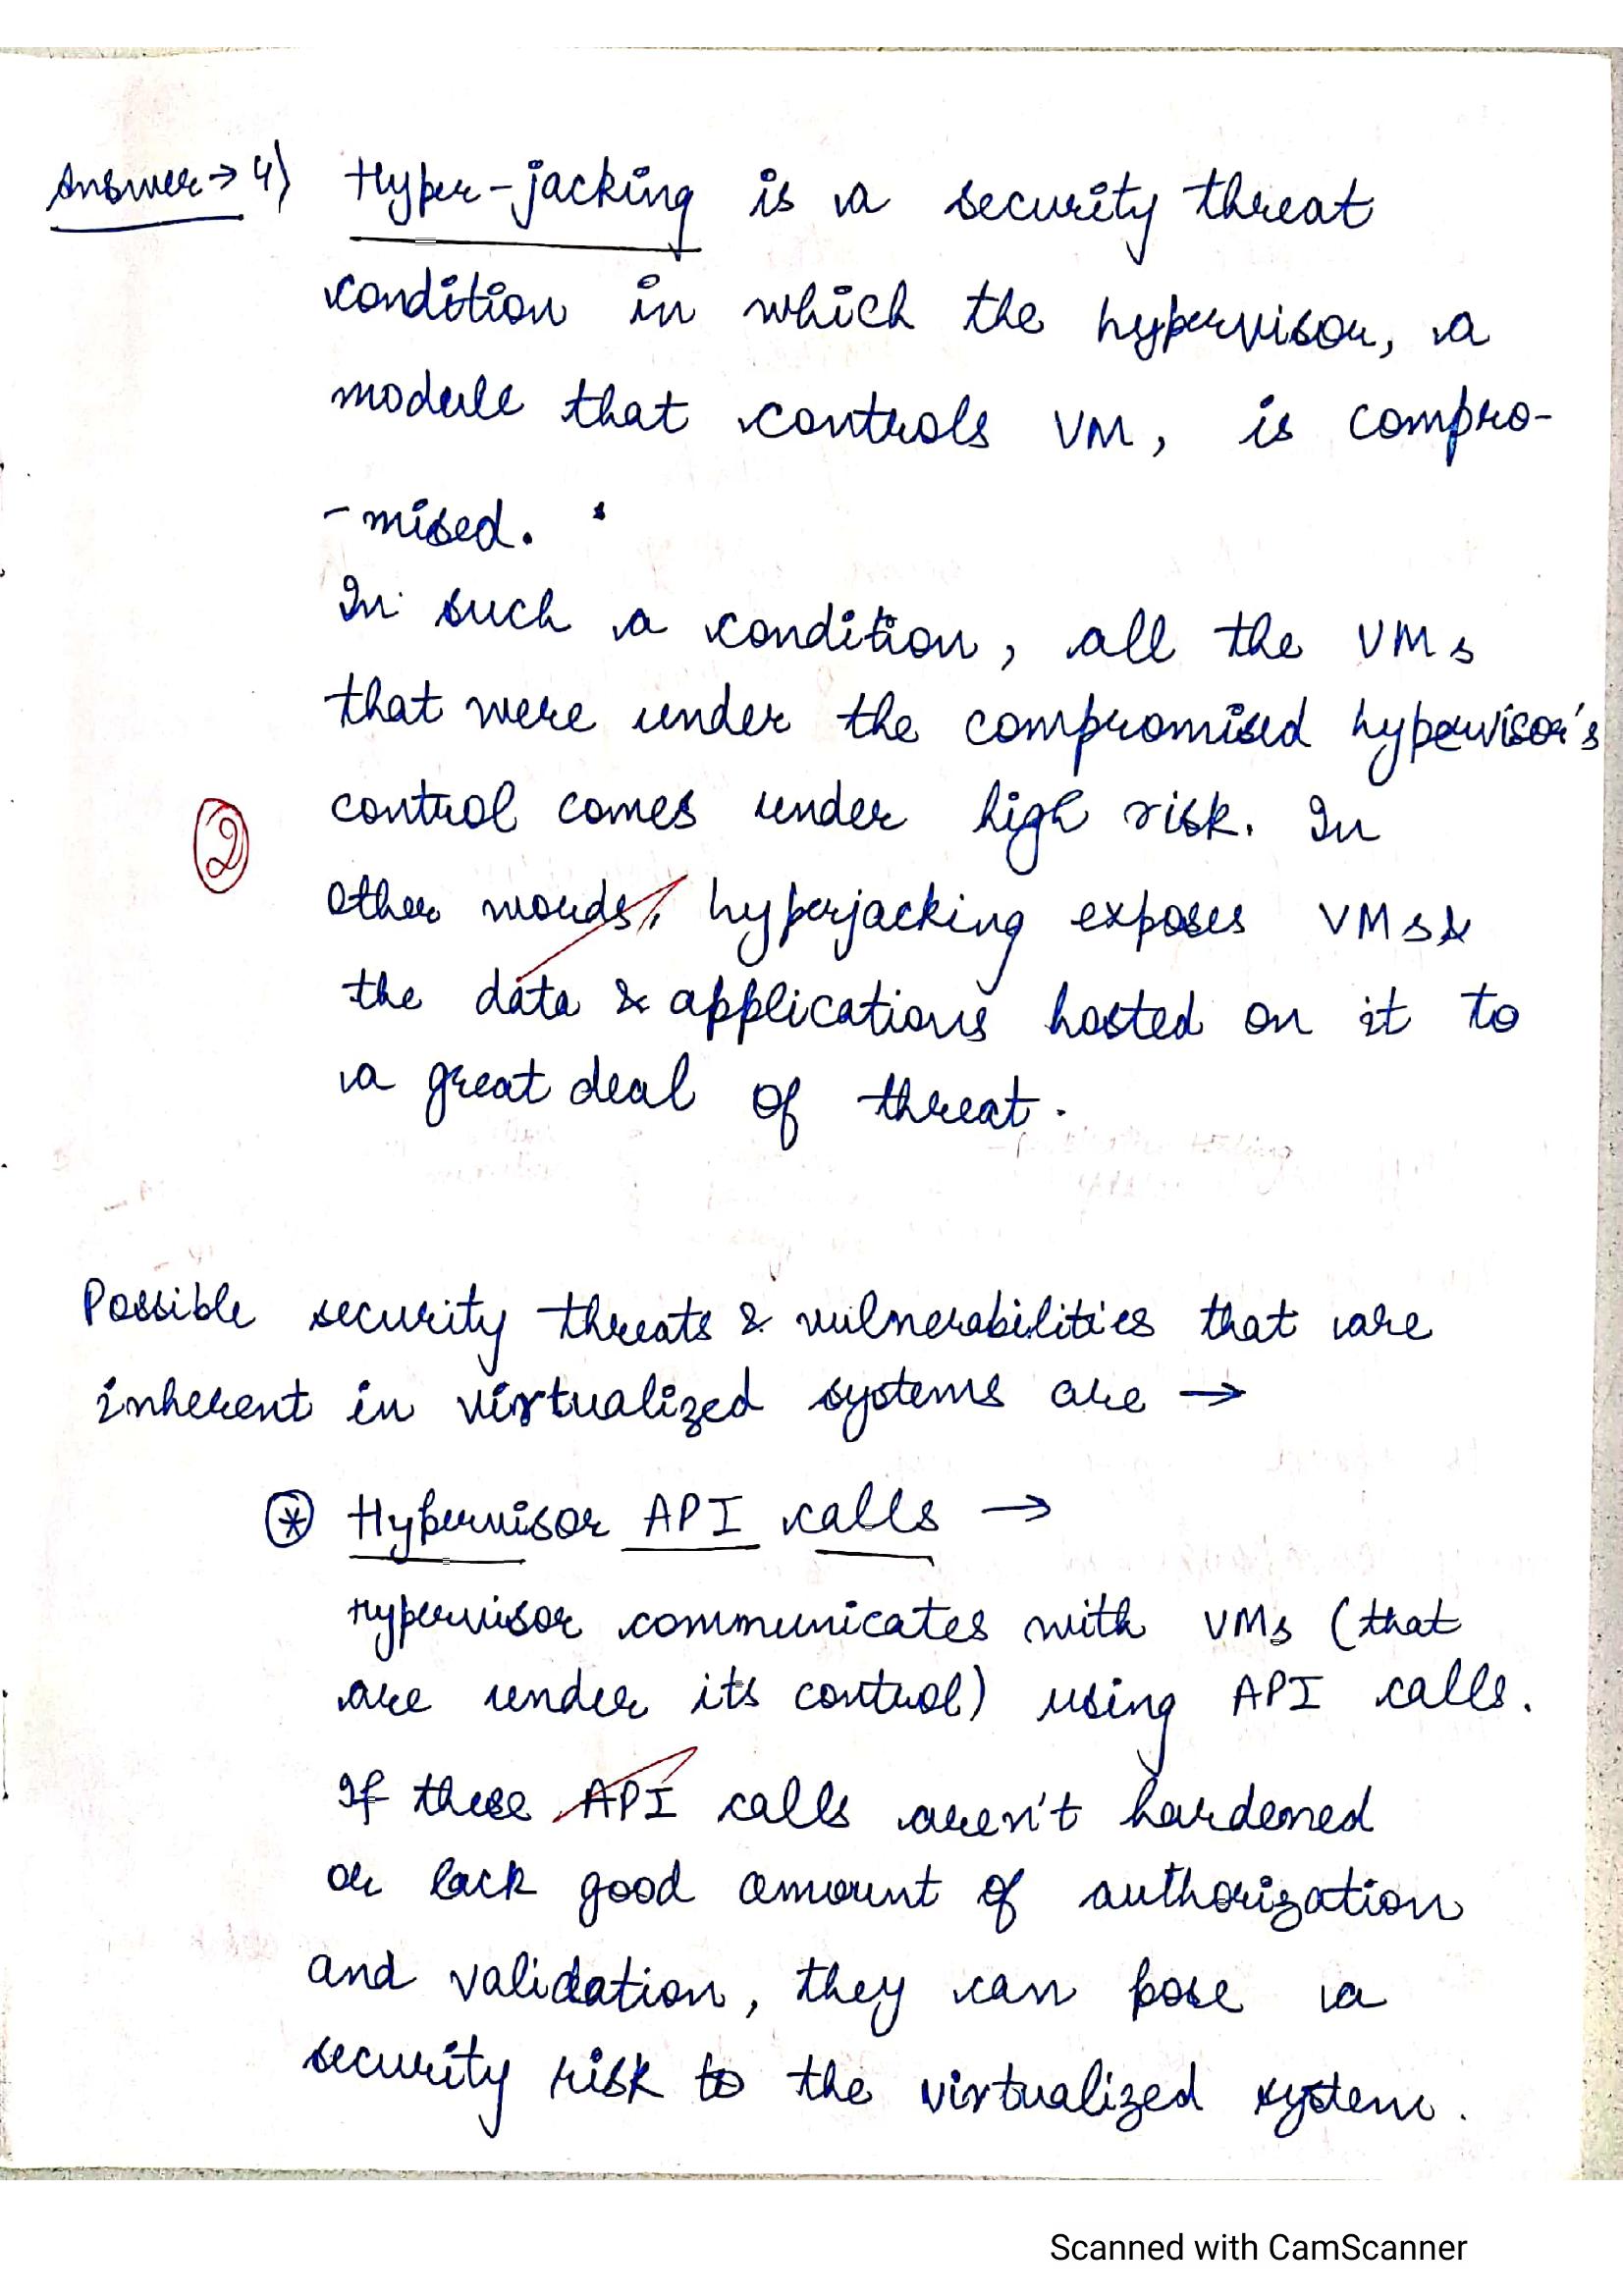 Answer → 4) Hyper-jacking is a security threat
condition in which the hypervisor, a
module that controls VM, is compro-
-mised.
In such a condition, all the VMs
that were under the compromised hypervisor's
control comes under high risk. In
②
other words, hyperjacking exposes VMs &
the data & applications hosted on it to
a great deal of threat.
Possible security threats & vulnerabilities that are
inherent in virtualized systems are →
* Hypervisor API calls →
Hypervisor communicates with VMs (that
are under its control) using API calls.
If these API calls aren't hardened
or lack good amount of authorization
and validation, they can pose a
security risk to the virtualized system.
Scanned with CamScanner